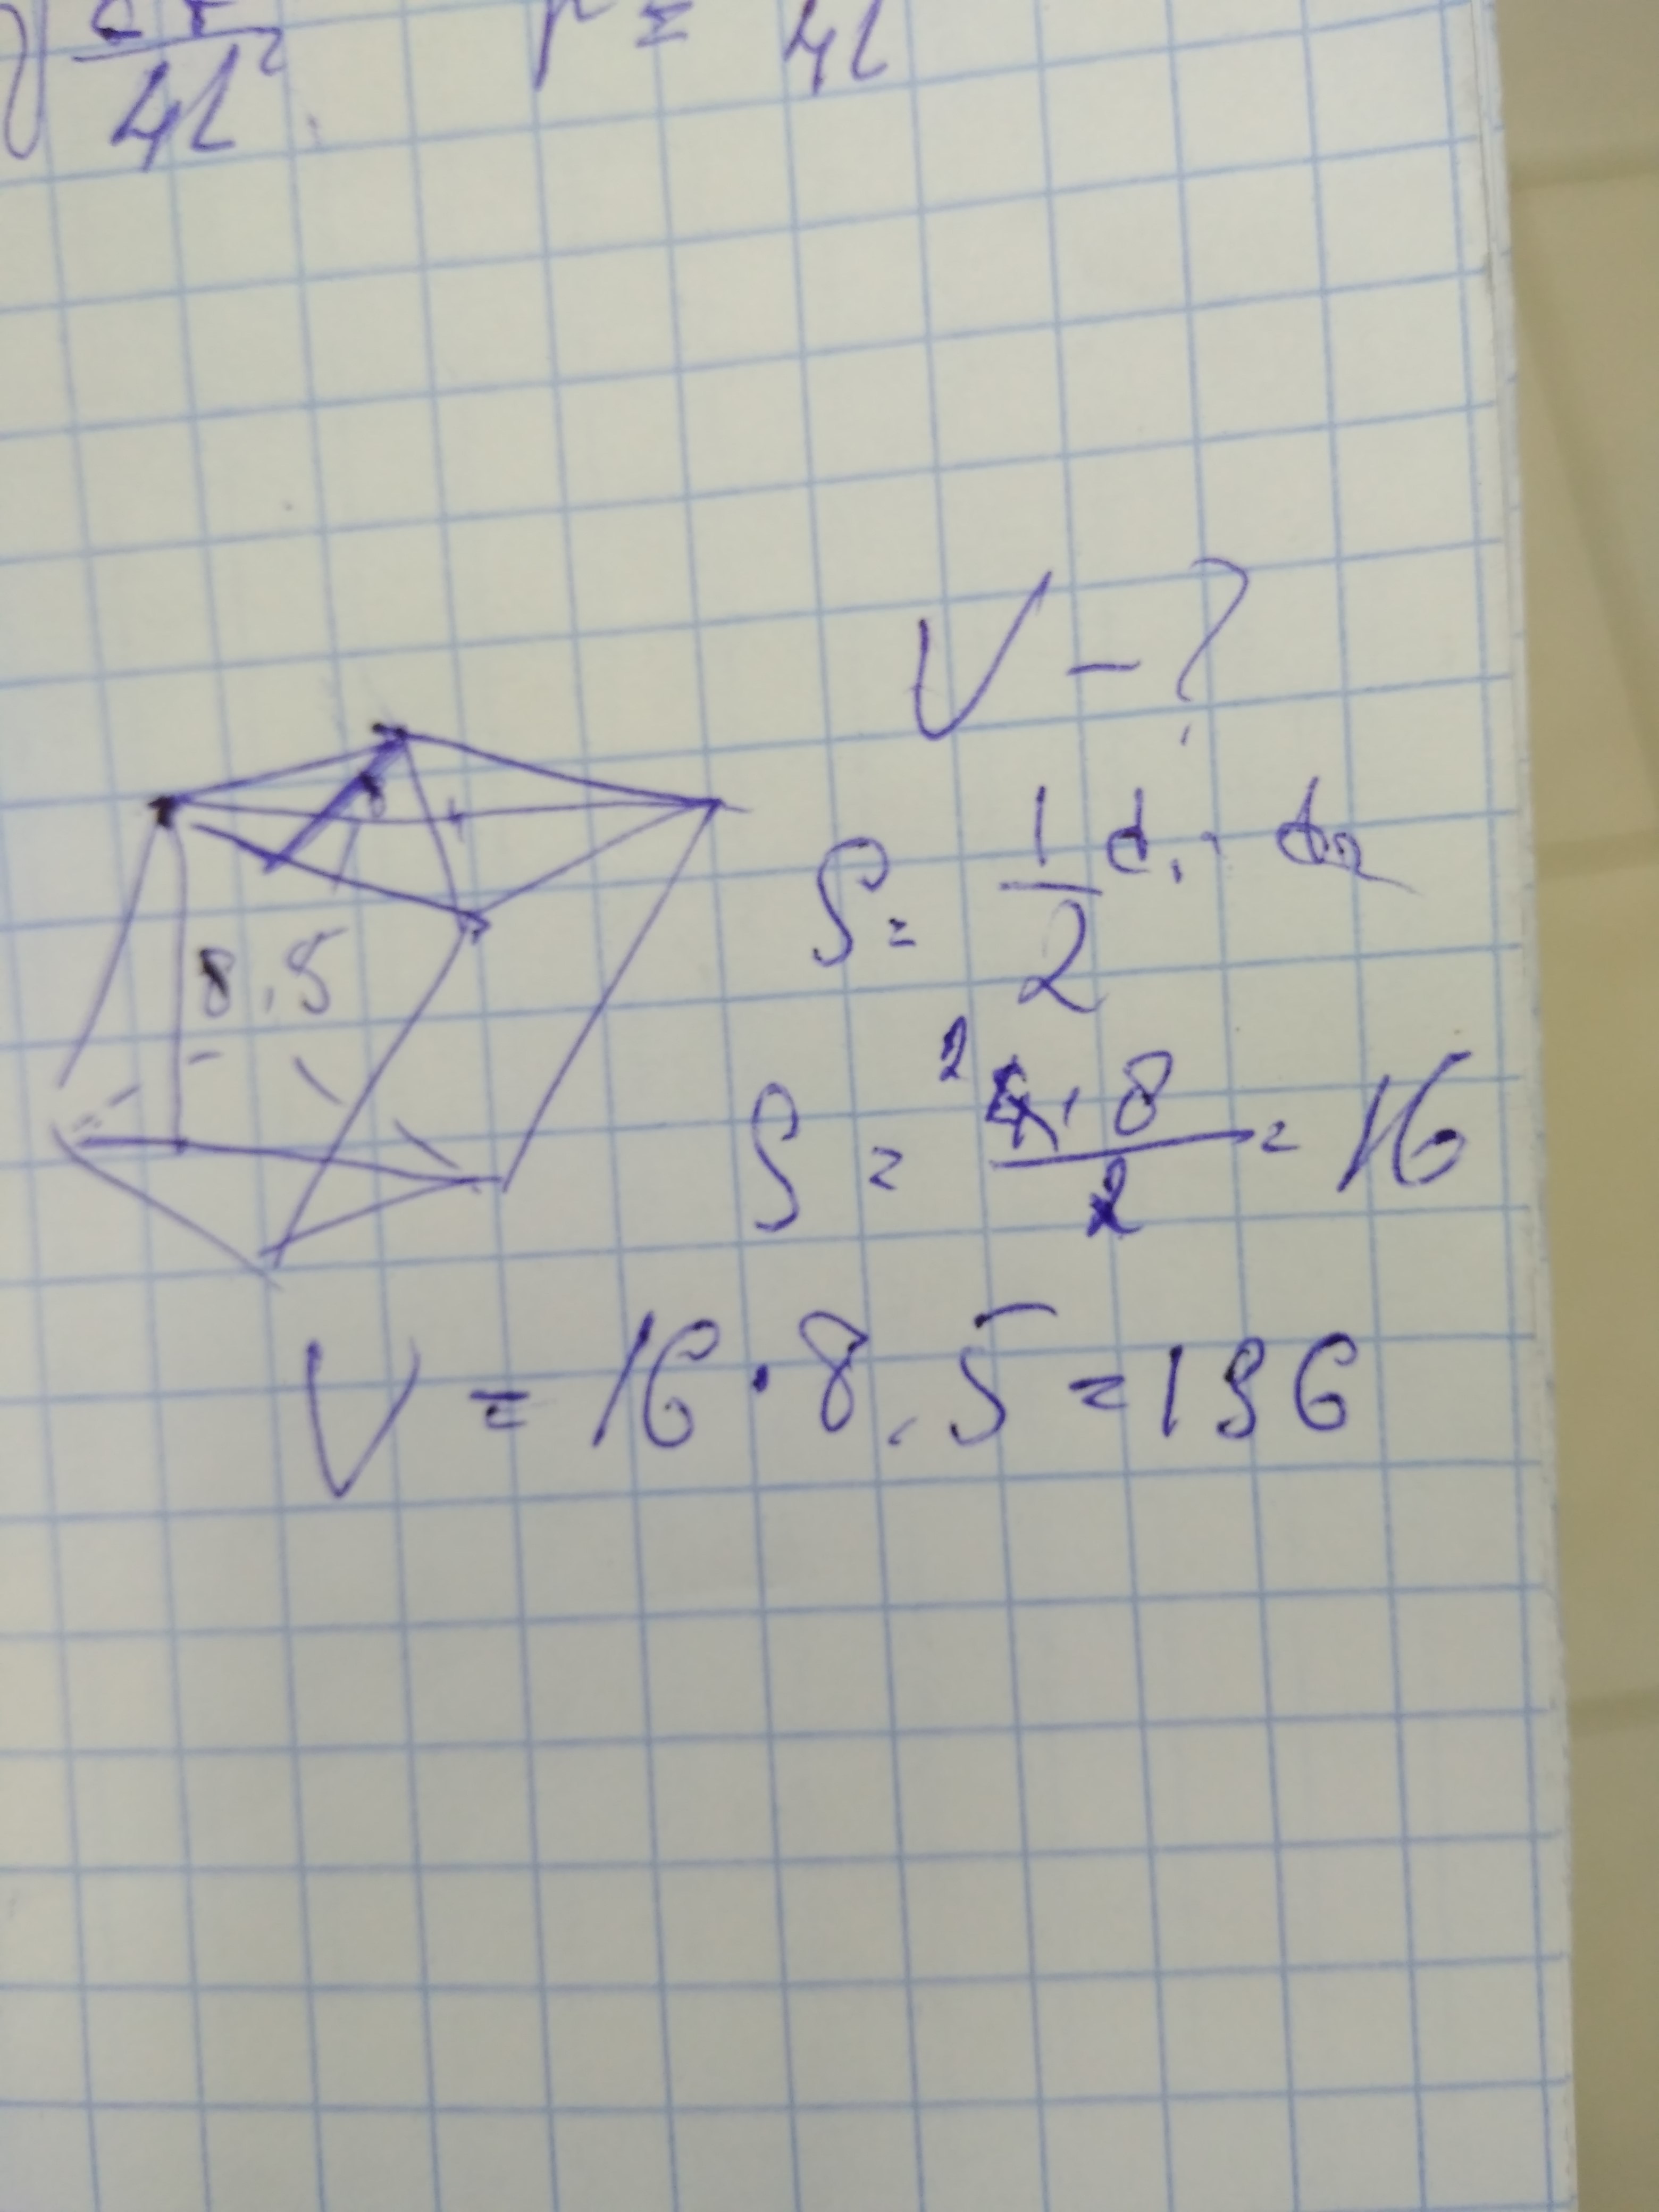 4l²
r = 4l
V - ?
S = 1/2 d₁ · d₂
8.5
S = 2 4 · 8 / 2 = 16
V = 16 · 8.5 = 136